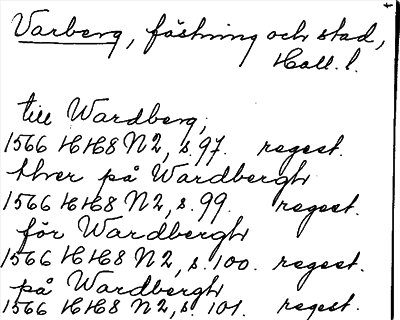 Varberg, fästning och stad,
Hall. l.
till Wardberg,
1566 HH8 N2, s. 97. regest.
thver på Wardbergh
1566 HH8 N2, s. 99. regest.
för Wardbergh
1566 HH8 N2, s. 100. regest.
på Wardbergh
1566 HH8 N2, s. 101. regest.